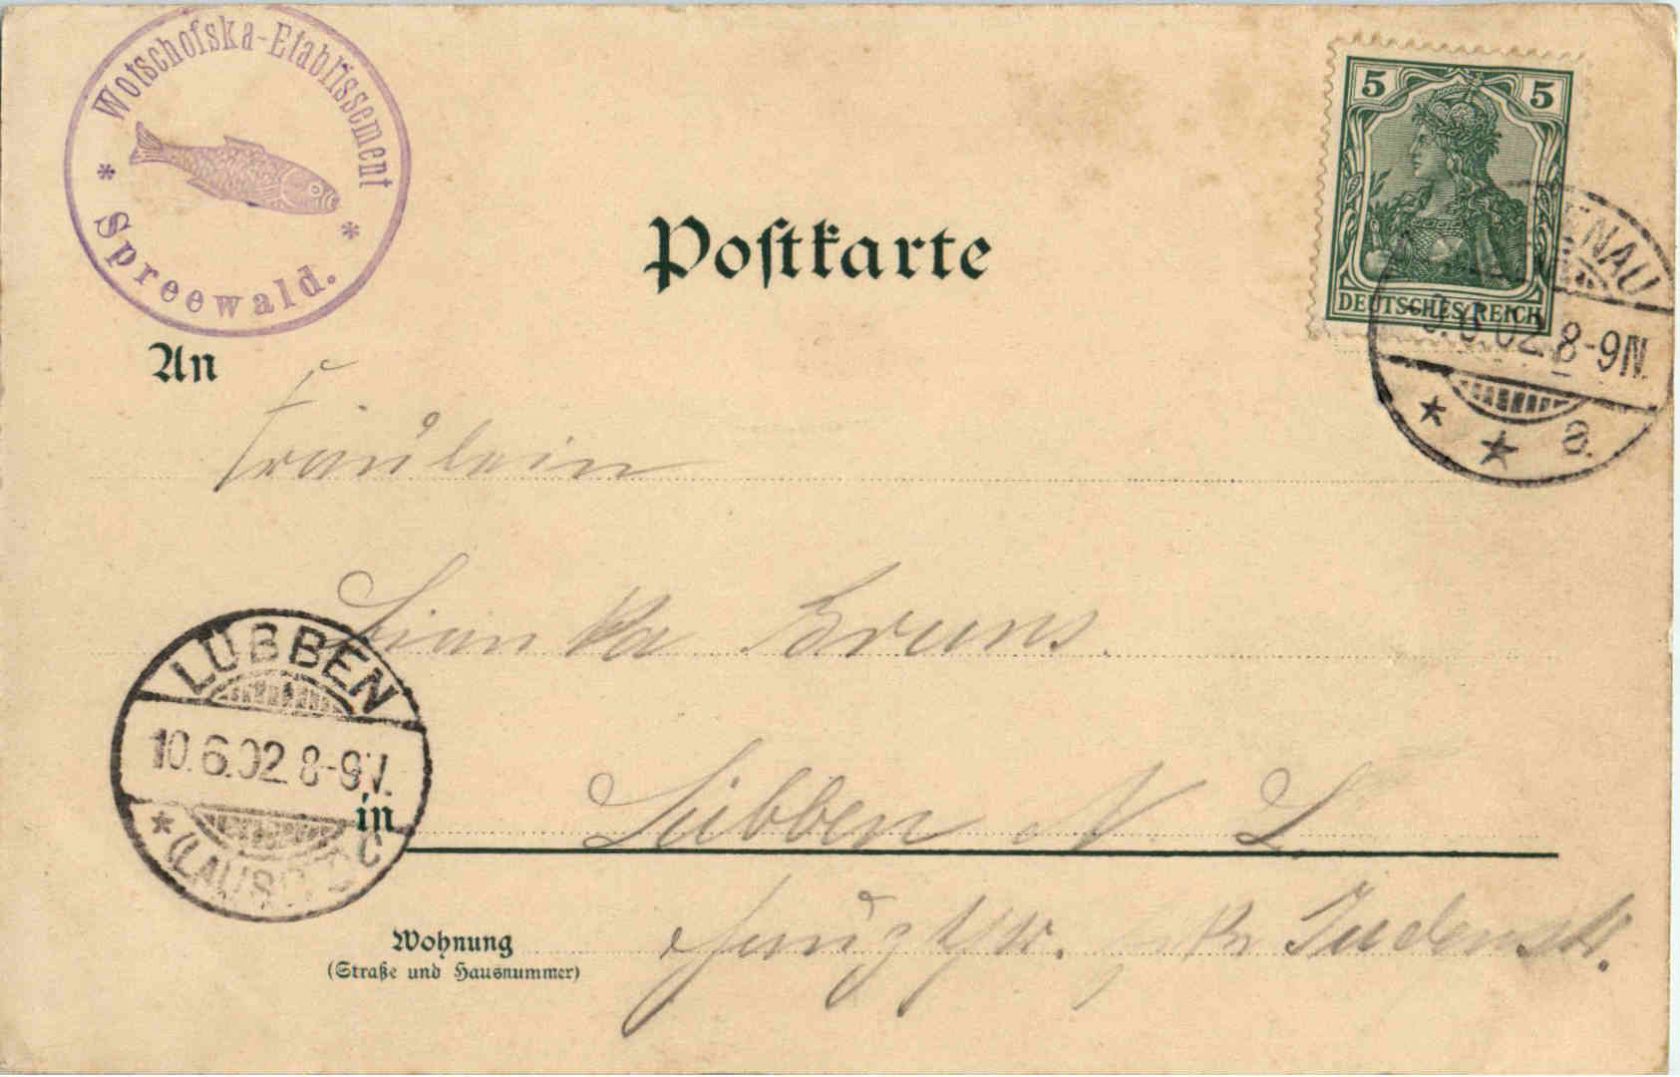 Wotschofska-Etablissement
* Spreewald. *
Postkarte
5 5
DEUTSCHES REICH
ENAU
02 8-9N.
* * a.
An
Fräulein
Bianka Bruns.
LÜBBEN
10.6.02 8-9V.
* (LAUSITZ)
in
Lübben N L
Wohnung
(Straße und Hausnummer)
Hauptstr. Judenstr.